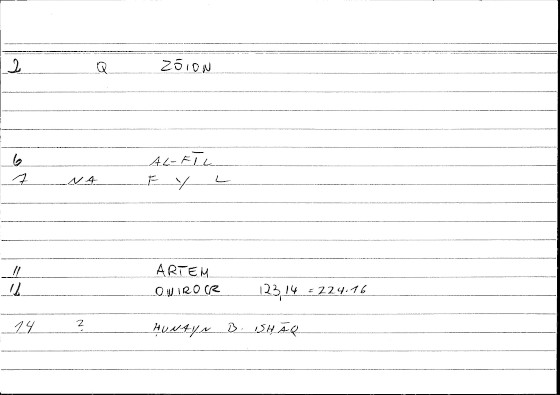 2 Q ZŌION
6 AL-FĪL
7 NA F Y L
11 ARTEM
12 ONIROCR 123,14 = 224.16
14 ? ḤUNAYN B. ISḤĀQ